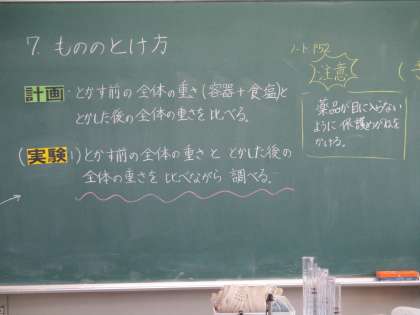 7. もののとけ方
計画 とかす前の全体の重さ(容器+食塩)と
とかした後の全体の重さを比べる。
(実験1)とかす前の全体の重さと とかした後の
全体の重さを 比べながら 調べる。
ノート P52
注意
薬品が目に入らない
ように 保護めがねを
かける。